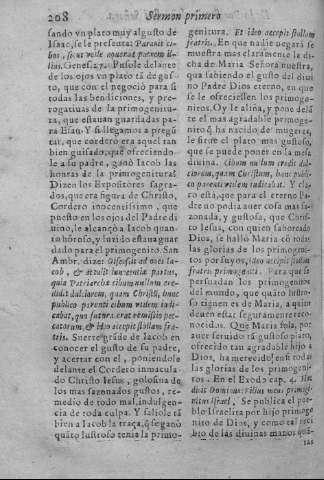 208 Sermon primero
sando vn plato muy al gusto de
Isaac, se le presenta: Parenti ci-
bos, scut velle nouerat patrem il-
lius. Genes. 27. Pusole delante
de los ojos vn plato tã de gus-
to, que con el negociò para si
todas las bendiciones, y pre-
rogatiuas de la primogenitura,
que estauan guardadas pa-
ra Esau. Y si llegamos a pregũ
tar, que cordero era aquel tan
bien guisado, que ofreciendo-
le a su padre, ganò Iacob las
honras de la primogenitura?
Dizen los Expositores sagra-
dos, que era figura de Christo,
Cordero inocentissimo, que
puesto en los ojos del Padre di
uino, le alcançò a Iacob quan-
to hõroso, y luzido estaua guar
dado para el primogenito. San
Ambr. dize:
Iacob,
quia Patriarcha cibum nullum cre-
didit dulciorem, quam Christũ, hunc
publico parenti cibum ridem
cabat, quo futura erat remissio pec-
catorum, & Ideo accepit stollam fra-
tris. Suerte grãde de Iacob en
conocer el gusto de su padre,
y acertar con el, poniendole
delante el Cordero inmacula-
do Christo Iesus, golosina de
los mas sazonados gustos, re-
medio de todo mal, indulgen-
cia de toda culpa. Y saliole tã
bien a Iacob la traça, q̃ se ganò
quãto lustroso tenia la primo-
genitura. Et ideo accepit stollam
fratris. En que nadie negarà se
muestra mas claramente la di-
cha de Maria Señora nuestra,
que sabiendo el gusto del diui
no Padre Dios eterno, en que
se le ofreciessen los primoge-
nitos. Oy le aliña, y pone delã
te el mas agradable primoge-
nito q̃ ha nacido de mugeres,
le sirue el plato mas gustoso,
que se puede poner en la mesa
diuina. Cibum nullum credit dul-
ciorem, quam Christum, hunc publi-
co parenti ridem iudicabat. Y cla-
ro està, que para el eterno Pa-
dre no podia auer cosa mas sa-
zonada, y gustosa, que Chris-
to Iesus, con quien saboreado
Dios, se hallò Maria cõ todas
las glorias de los primogeni-
tos por suyos, ideo accepit stollam
fratris primogeniti. Para que se
persuadan los primogenitos
del mundo, que quãto lustro-
so tienen es de Maria, a quien
deuen estar seguramente reco-
nocidas. Que Maria sola, por
auer seruido tã gusto so plato,
ofrecido tan agradable hijo a
Dios, ha merecido en si todas
las glorias de los primogeni-
tos. En el Exodo cap. 4. Hæc
dicit Dominus: Filius meus primoge-
nitus Israel. Se publica el pue-
blo Israelita por hijo primoge
nito de Dios, y como tal reci
bio de las diuinas manos quã-
tas